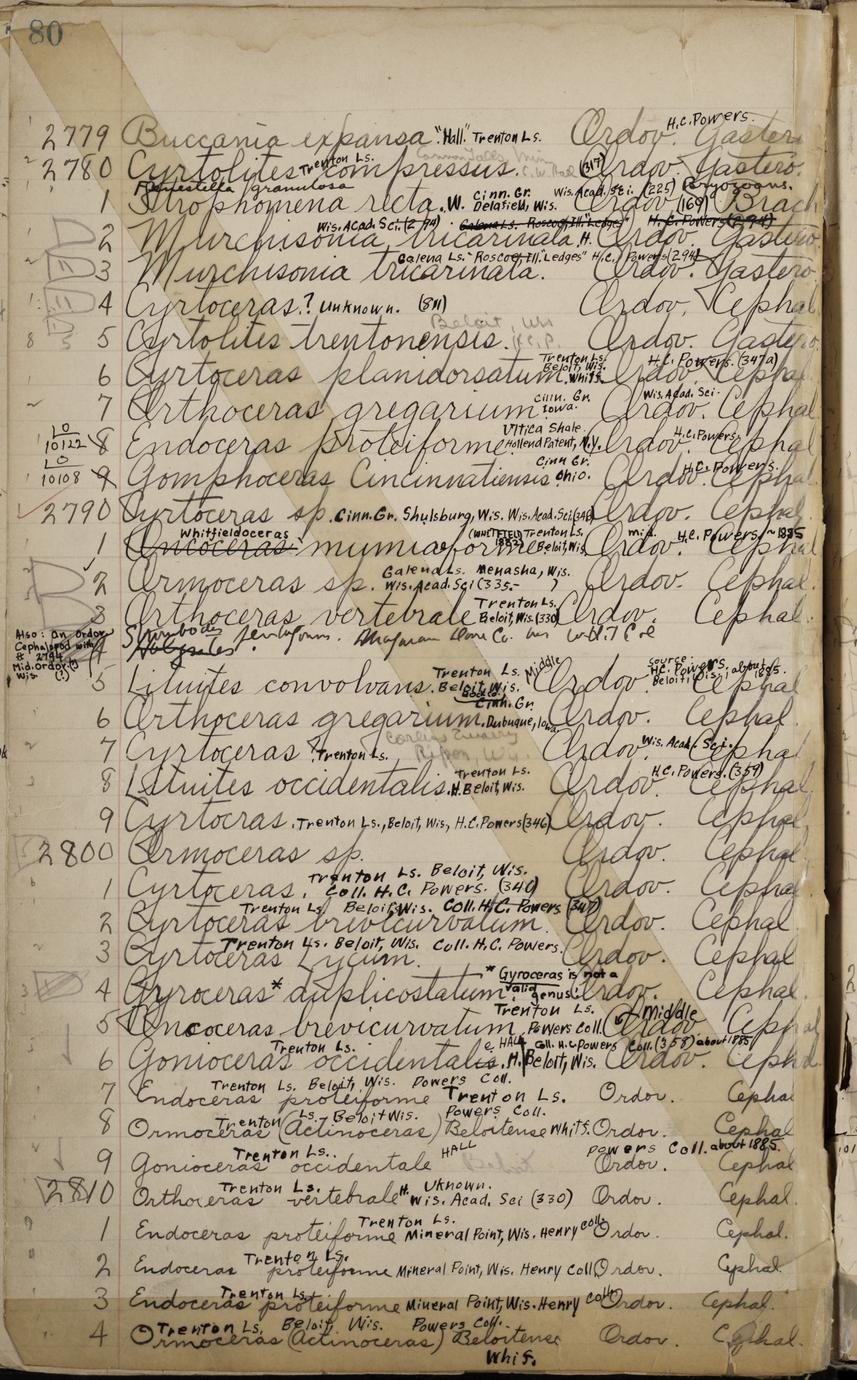 80
2779 Buccania expansa "Hall." Trenton Ls. Ordov. H.C. Powers. Gastero
2780 Cyrtolites compressus. Trenton Ls. (317) Ordov. Gastero.
Fenestella granulosa Cinn. Gr. Wis. Acad. Sci. (225) Bryozoans.
1 Strophomena recta. W. Delafield, Wis. Ordov (169) Brach
2 Murchisonia tricarinata. H. Wis. Acad. Sci. (294) Galena Ls. Roscoe, Ill. "Ledges" H.C. Powers (294) Ordov. Gastero.
3 Murchisonia tricarinata. Galena Ls. "Roscoe, Ill. Ledges" H.C. Powers (294) Ordov. Gastero.
4 Cyrtoceras? Unknown. (811) Ordov. Cephal.
Beloit, Wis
5 Cyrtolites trentonensis. H.C.P. Ordov. Gastero.
6 Cyrtoceras planidorsatum. Whitf. Trenton Ls. Beloit, Wis. Ordov. H.C. Powers. (347a) Cephal
7 Orthoceras gregarium. Cinn. Gr. Iowa. Ordov. Wis. Acad. Sci. Cephal.
LO 10122 8 Endoceras proteiforme Utica Shale. Hollend Patent, N.Y. Ordov. H.C. Powers. Cephal
LO 10108 9 Gomphoceras Cincinnatiensis Cinn Gr. Ohio. Ordov. H.C. Powers. Cephal
2790 Cyrtoceras sp. Cinn. Gr. Shulsburg, Wis. Wis. Acad. Sci. (346) Ordov. Cephal
1 Oncoceras Whitfieldoceras mumiaforme (WHITFIELD) 1882 Trenton Ls. Beloit, Wis Mid. Ordov. H.C. Powers. ~1885 Cephal
2 Ormoceras sp. Galena Ls. Menasha, Wis. Wis. Acad. Sci (335- ) Ordov. Cephal.
3 Orthoceras vertebrale Trenton Ls. Beloit, Wis. (330) Ordov. Cephal.
Also: an Ordov. Cephalopod with # 2794 Mid. Ordov. (?) Wis. (?)
4
5 Lituites convolvans. Trenton Ls. Beloit, Wis. Middle Ordov. Source: H.C. Powers, Beloit, Wis., about 1885. Cephal
6 Orthoceras gregarium. Cinn. Gr. Dubuque, Iowa Ordov. Cephal.
7 Cyrtoceras? Trenton Ls. Ripon, Wis. Ordov. Wis. Acad. Sci. Cephal
8 Lituites occidentalis. H. Trenton Ls. Beloit, Wis. Ordov. H.C. Powers. (359) Cephal.
9 Cyrtocras. Trenton Ls., Beloit, Wis., H.C. Powers (346) Ordov. Cephal.
2800 Ormoceras sp. Ordov. Cephal
1 Cyrtoceras. Trenton Ls. Beloit, Wis. Coll. H.C. Powers. (340) Ordov. Cephal
2 Cyrtoceras brevicurvatum. Trenton Ls. Beloit, Wis. Coll. H.C. Powers (347) Ordov. Cephal
3 Cyrtoceras Lycum. Trenton Ls. Beloit, Wis. Coll. H.C. Powers. Ordov. Cephal
4 Gyroceras* duplicostatum. * Gyroceras is not a valid genus! Ordov. Cephal.
5 Oncoceras brevicurvatum. Trenton Ls. Powers Coll. Middle Ordov. Cephal
6 Gonioceras occidentale. H. HALL Trenton Ls. Beloit, Wis. Coll. H.C. Powers Coll. (358) about 1885 Ordov. Cephal
7 Endoceras proteiforme Trenton Ls. Beloit, Wis. Powers Coll. Trenton Ls. Ordov. Cephal
8 Ormoceras (Actinoceras) Beloitense Whitf. Trenton Ls. Beloit Wis. Powers Coll. Ordov. Cephal
9 Gonioceras occidentale HALL Trenton Ls. Beloit Powers Coll. about 1885. Ordov. Cephal
2810 Orthoceras vertebrale H. Trenton Ls. Uknown. Wis. Acad. Sci (330) Ordov. Cephal.
1 Endoceras proteiforme Trenton Ls. Mineral Point, Wis. Henry coll. Ordov. Cephal.
2 Endoceras proteiforme Trenton Ls. Mineral Point, Wis. Henry Coll Ordov. Cephal.
3 Endoceras proteiforme Trenton Ls. Mineral Point, Wis. Henry coll. Ordov. Cephal.
4 Ormoceras (Actinoceras) Beloitense Whitf. Trenton Ls. Beloit, Wis. Powers Coll. Ordov. Cephal.